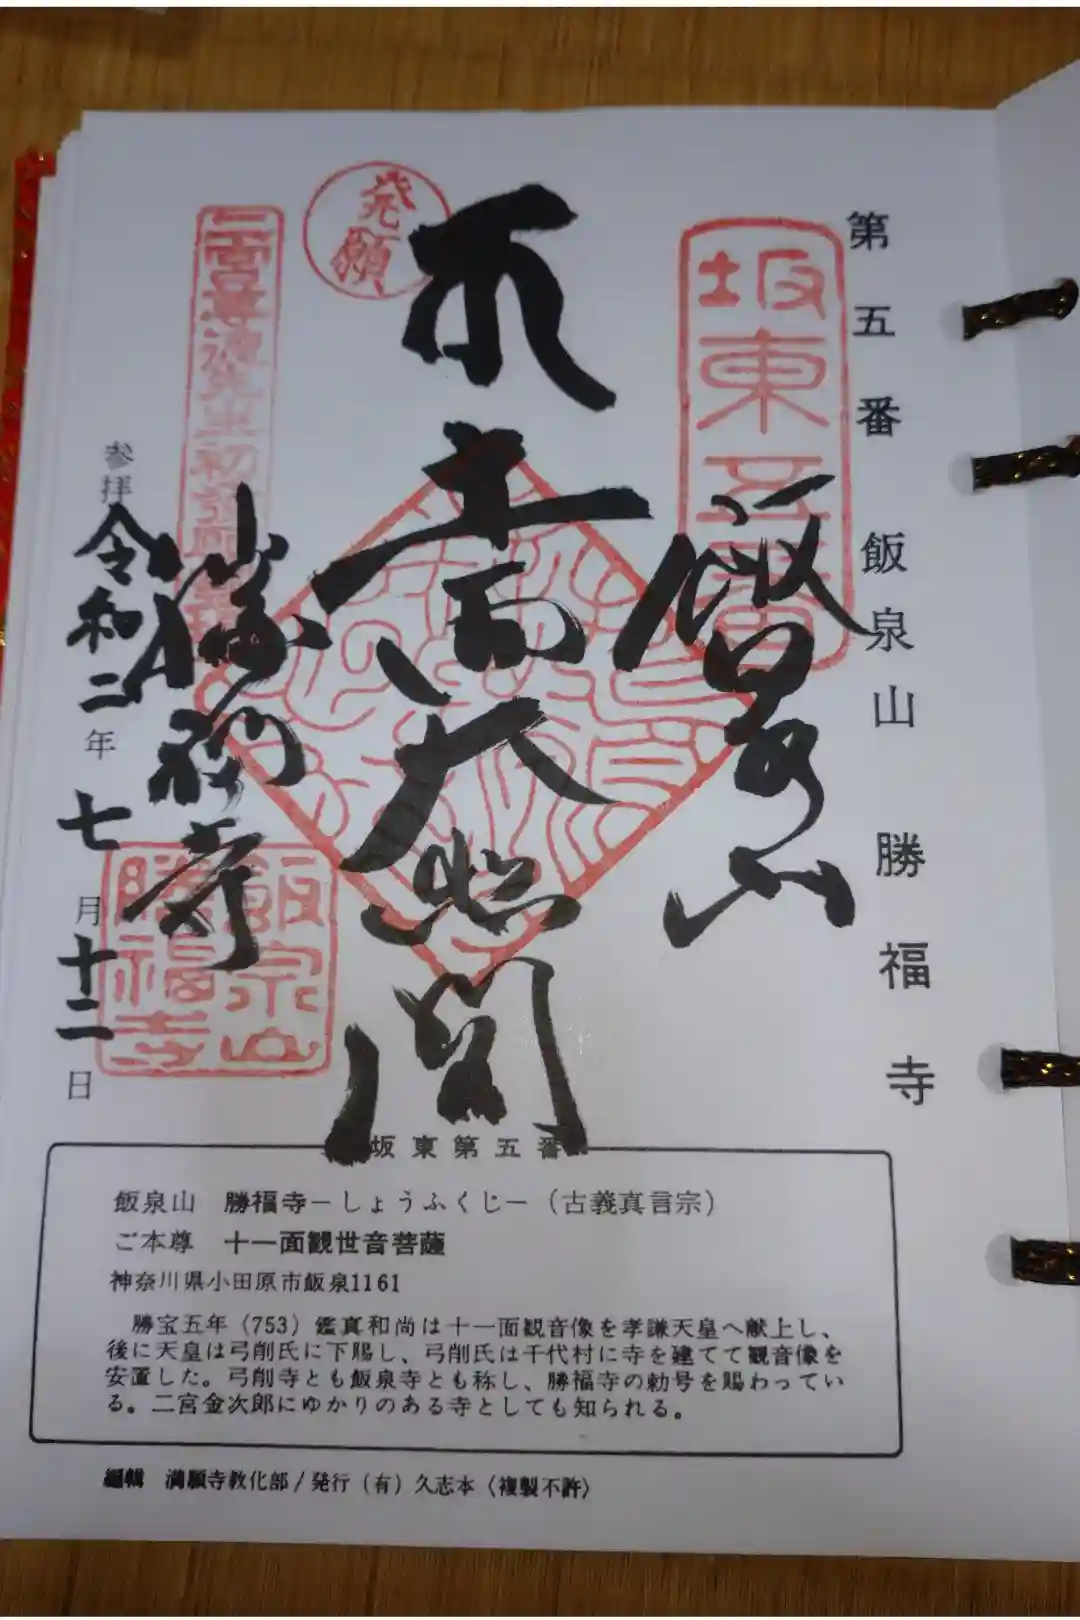 第五番 飯泉山 勝福寺
坂東五番
飯泉山
発願
十一面大悲閣
二宮尊徳先生初発願
勝福寺
飯泉山
勝福寺
参拝 令和二年七月十二日
坂東第五番
飯泉山 勝福寺−しょうふくじ−（古義真言宗）
ご本尊 十一面観世音菩薩
神奈川県小田原市飯泉1161
勝宝五年（753）鑑真和尚は十一面観音像を孝謙天皇へ献上し、
後に天皇は弓削氏に下賜し、弓削氏は千代村に寺を建てて観音像を
安置した。弓削寺とも飯泉寺とも称し、勝福寺の勅号を賜わってい
る。二宮金次郎にゆかりのある寺としても知られる。
編輯 満願寺教化部/発行（有）久志本〈複製不許〉